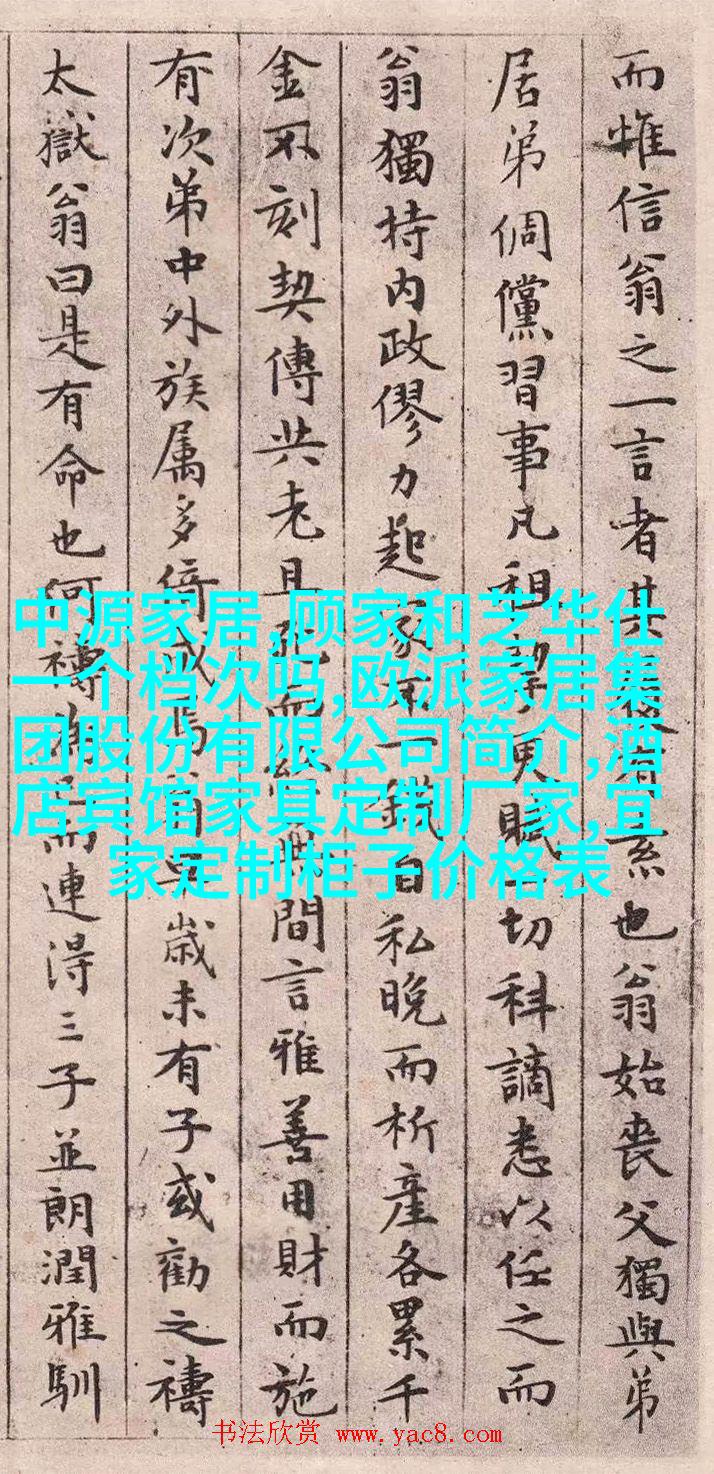 而惟信翁之一言者其
素也翁始喪父獨與弟
居弟倜儻習事凡租
更賦一切科謫悉以任之而
翁獨持内政僇力起家
一錢自私晚而析産各累千
金不刻契傳共老且死而
間言雅善用財而施
有次第中外族属多倚
歲未有子或勸之禱
太嶽翁曰是有命也何禱爲
而連淂三子並朗潤雅馴
中源家居,顾家和芝华仕
一个档次吗,欧派家居集
团股份有限公司简介,酒
店宾馆家具定制厂家,宜
家定制柜子价格表
书法欣赏 www.yac8.com